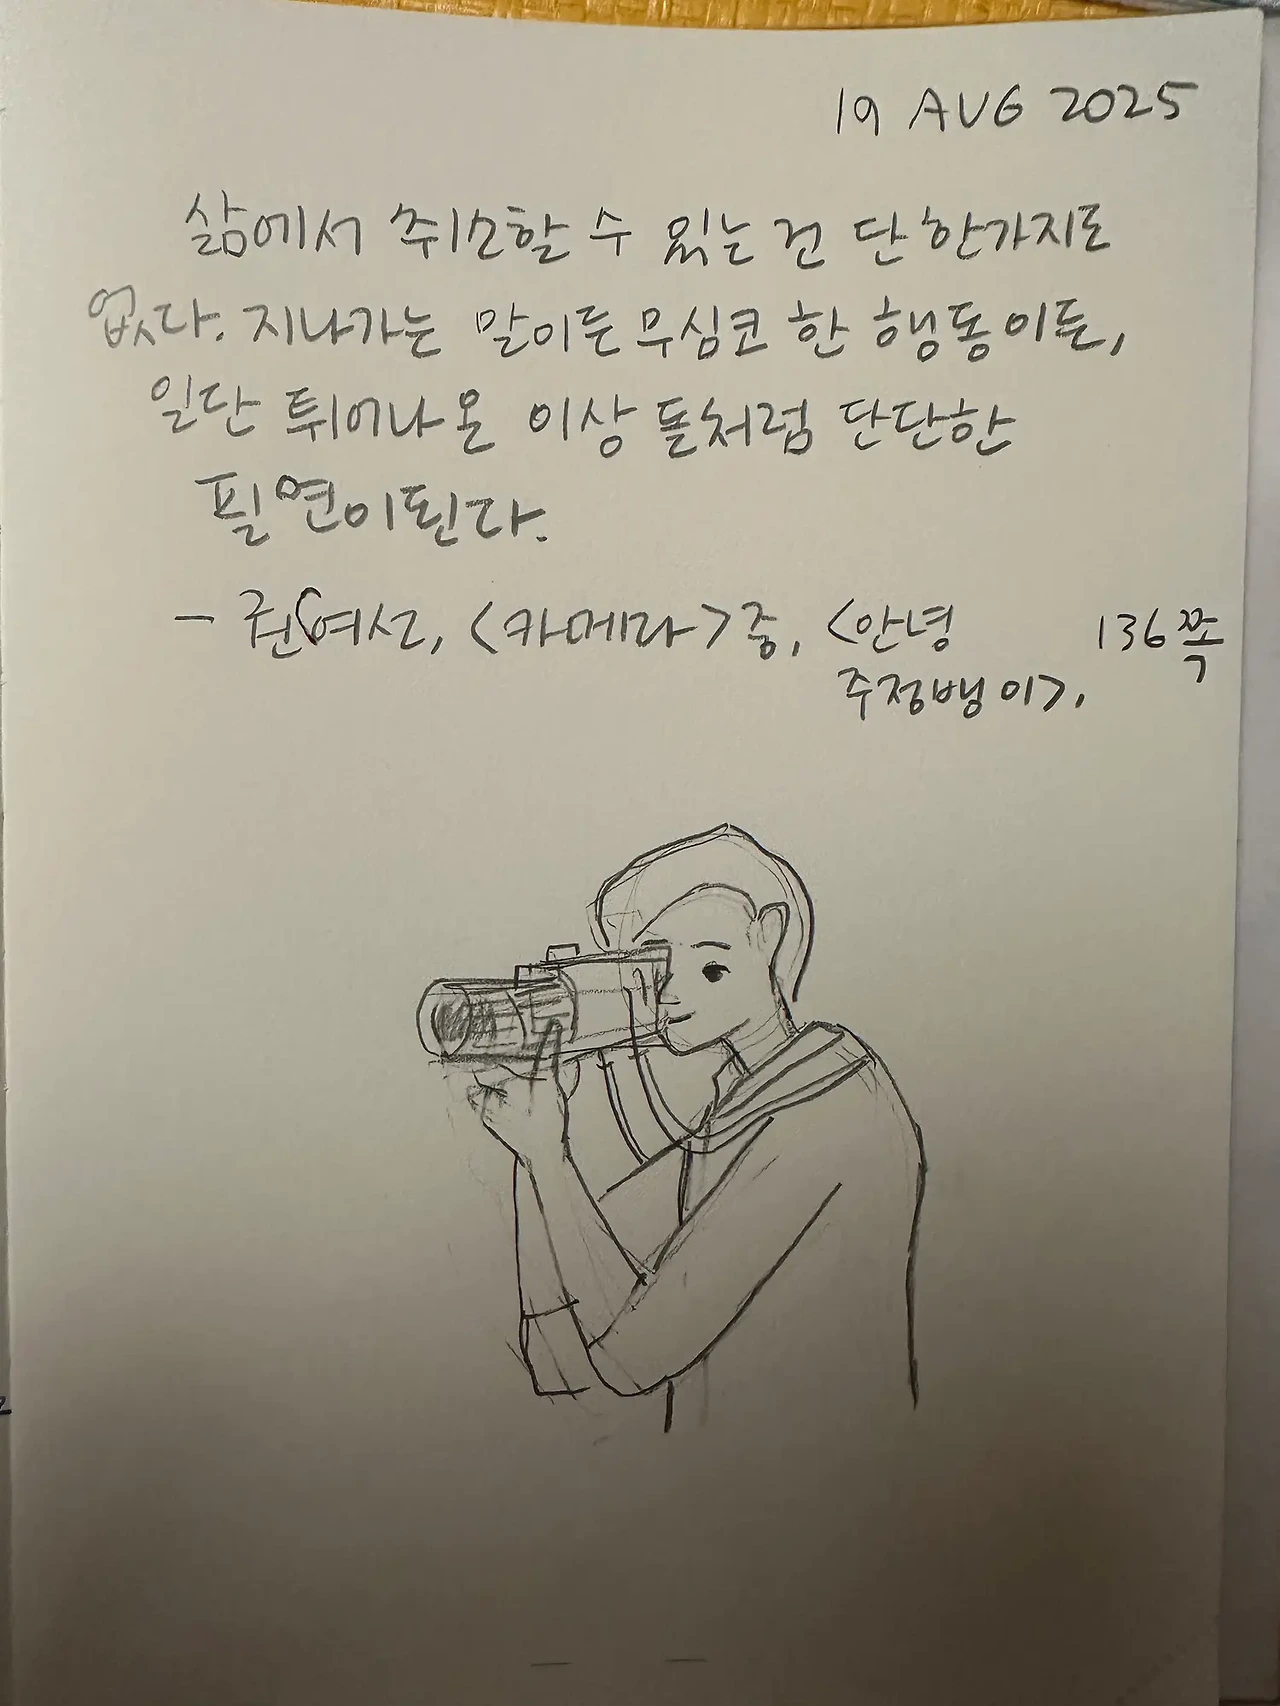 19 AUG 2025
삶에서 취소할 수 있는 건 단 한가지도
없다. 지나가는 말이든 무심코 한 행동이든,
일단 튀어나온 이상 돌처럼 단단한
필연이된다.
- 권여선, <카메라>중, <안녕 136쪽
주정뱅이>,